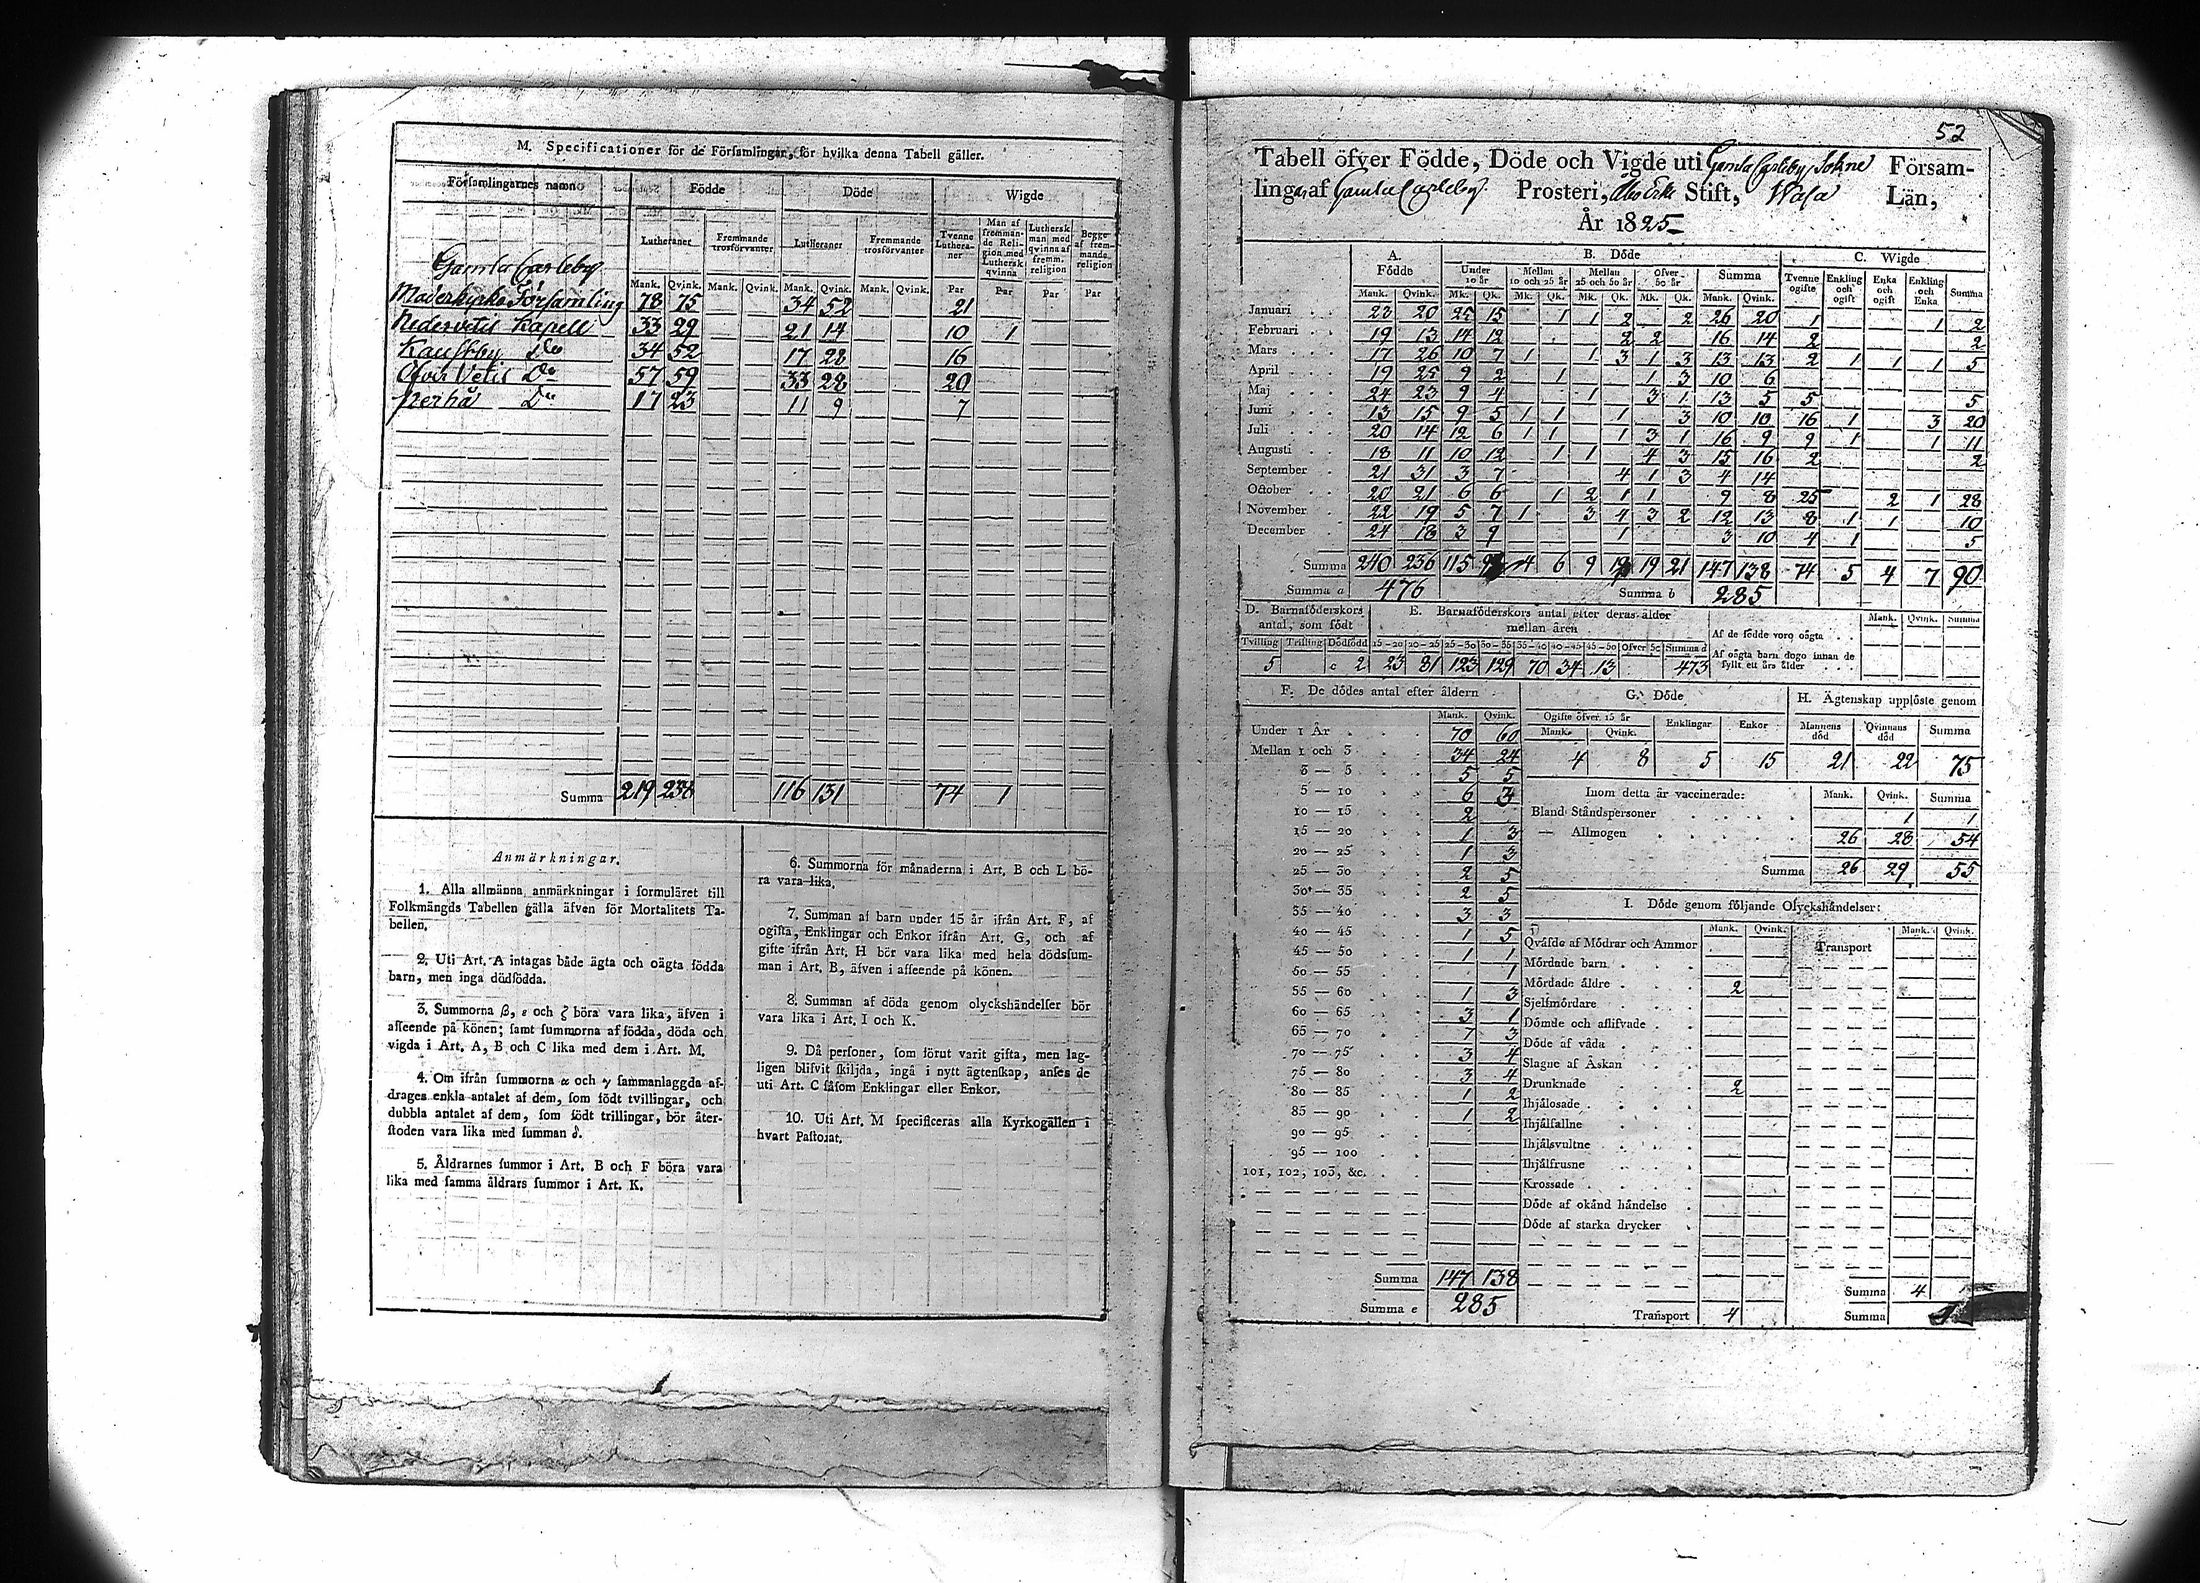 M. Specificationer för de Församlingar, för hvilka denna Tabell gäller.
Församlingarnes namn Födde Döde Wigde
Lutheraner Fremmande trosförvanter Lutheraner Fremmande trosförvanter Tvenne Lutheraner Man af fremmande Religion med Luthersk qvinna Luthersk man med qvinna af fremm. religion Begge af fremmande religion
Mank. Qvink. Mank. Qvink. Mank. Qvink. Mank. Qvink. Par Par Par Par
Gamla Carleby
Moderkyrko Församling 78 75 34 52 21
Nedervetil Kapell 33 29 21 14 10 1
Kaustby Do 34 52 17 28 16
Öfver Vetil Do 57 59 33 28 20
Perho Do 17 23 11 9 7
Summa 219 238 116 131 74 1
Anmärkningar.
1. Alla allmänna anmärkningar i formuläret till
Folkmängds Tabellen gälla äfven för Mortalitets Ta-
bellen.
2. Uti Art. A intagas både ägta och oägta födda
barn, men inga dödfödda.
3. Summorna β, ε och ζ böra vara lika, äfven i
affeende på könen; samt summorna af födda, döda och
vigda i Art. A, B och C lika med dem i Art. M.
4. Om ifrån summorna α och γ sammanlaggda af-
drages enkla antalet af dem, som födt tvillingar, och
dubbla antalet af dem, som födt trillingar, bör åter-
stoden vara lika med summan δ.
5. Åldrarnes summor i Art. B och F böra vara
lika med samma åldrars summor i Art. K.
6. Summorna för månaderna i Art. B och L bö-
ra vara lika.
7. Summan af barn under 15 år ifrån Art. F, af
ogifta, Enklingar och Enkor ifrån Art. G, och af
gifte ifrån Art. H bör vara lika med hela dödssum-
man i Art. B, äfven i affeende på könen.
8. Summan af döda genom olyckshändelser bör
vara lika i Art. I och K.
9. Då personer, som förut varit gifta, men lag-
ligen blifvit skiljda, ingå i nytt ägtenskap, anses de
uti Art. C såsom Enklingar eller Enkor.
10. Uti Art. M specificeras alla Kyrkogällen i
hvart Pastorat.
52
Tabell öfver Födde, Döde och Vigde uti Gamla Carleby Sokne Församlingar af Gamla Carleby Prosteri, Åbo Erke Stift, Wasa Län,
År 1825
A. Födde B. Döde C. Wigde
Under 10 år Mellan 10 och 25 år Mellan 25 och 50 år Öfver 50 år Summa Tvenne ogifte Enkling och ogift Enka och ogift Enkling och Enka Summa
Mank. Qvink. Mk. Qk. Mk. Qk. Mk. Qk. Mk. Qk. Mank. Qvink.
Januari 23 20 25 15 1 1 2 2 26 20 1 1 2
Februari 19 13 14 12 2 2 16 14 2 2
Mars 17 26 10 7 1 1 3 1 3 13 13 2 1 1 1 5
April 19 25 9 2 1 1 3 10 6
Maj 24 23 9 4 1 3 1 13 5 5 5
Juni 13 15 9 5 1 1 1 3 10 10 16 1 3 20
Juli 20 14 12 6 1 1 1 3 1 16 9 9 1 1 11
Augusti 18 11 10 12 1 1 4 3 15 16 2 2
September 21 31 3 7 4 1 3 4 14
October 20 21 6 6 1 2 1 1 9 8 25 2 1 28
November 22 19 5 7 1 3 4 3 2 12 13 8 1 1 10
December 24 18 3 9 1 3 10 4 1 5
Summa 240 236 115 4 6 9 19 21 147 138 74 5 4 7 90
Summa a 476 Summa b 285
D. Barnaföderskors antal, som födt E. Barnaföderskors antal efter deras ålder mellan åren
Mank. Qvink. Summa
Tvilling Trilling Dödfödd 15-20 20-25 25-30 30-35 35-40 40-45 45-50 Öfver 50 Summa d
5 c 2 23 81 123 129 70 34 13 473
Af de födde voro oägta
Af oägta barn dogo innan de fyllt ett års ålder
F. De dödes antal efter åldern
Mank. Qvink.
Under 1 År 70 60
Mellan 1 och 3 34 24
3 — 5 5 5
5 — 10 6
10 — 15 2
15 — 20 1 3
20 — 25 1 3
25 — 30 2 5
30 — 35 2 5
35 — 40 3 3
40 — 45 1 5
45 — 50 1 1
50 — 55 1
55 — 60 1 3
60 — 65 3 1
65 — 70 7 3
70 — 75 3 4
75 — 80 3 4
80 — 85 1 2
85 — 90 1 2
90 — 95
95 — 100
101, 102, 103, &c.
Summa 147 138
Summa e 285
G. Döde
Ogifte öfver 15 år Enklingar Enkor
Mank. Qvink.
4 8 5 15
H. Ägtenskap upplöste genom
Mannens död Qvinnans död Summa
21 22 75
Inom detta år vaccinerade: Mank. Qvink. Summa
Bland Ståndspersoner 1 1
— Allmogen 26 28 54
Summa 26 29 55
I. Döde genom följande Olyckshändelser:
Mank. Qvink. Transport Mank. Qvink.
Qväfde af Mödrar och Ammor
Mördade barn
Mördade äldre 2
Sjelfmördare
Dömde och aflifvade
Döde af våda
Slagne af Åskan
Drunknade 2
Ihjälosade
Ihjälfallne
Ihjälsvultne
Ihjälfrusne
Krossade
Döde af okänd händelse
Döde af starka drycker
Summa 4
Transport 4 Summa